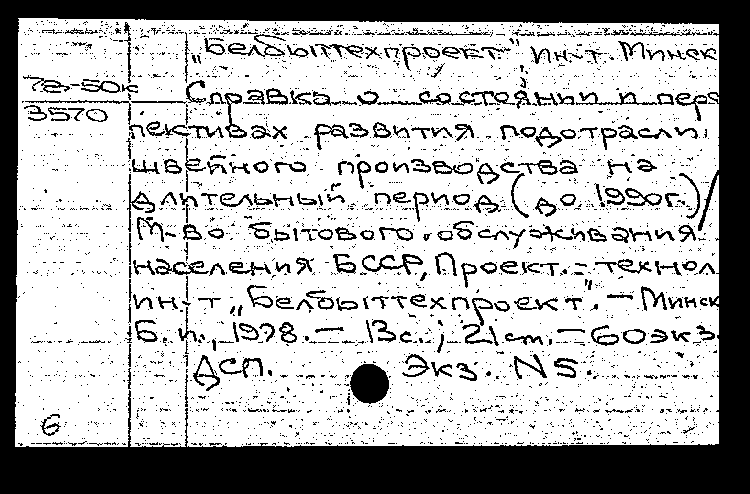 „Белбыттехпроект" ин-т. Минск
78-50к Справка о состоянии и перс
3570 пективах развития подотрасли
швейного производства на
длительный период (до 1990г.)/
М-во бытового обслуживания
населения БССР, Проект.-технол
ин-т „Белбыттехпроект". — Минск
Б. и., 1978. — 13с.; 21см. — 60экз
ДСП. Экз. N5.
6